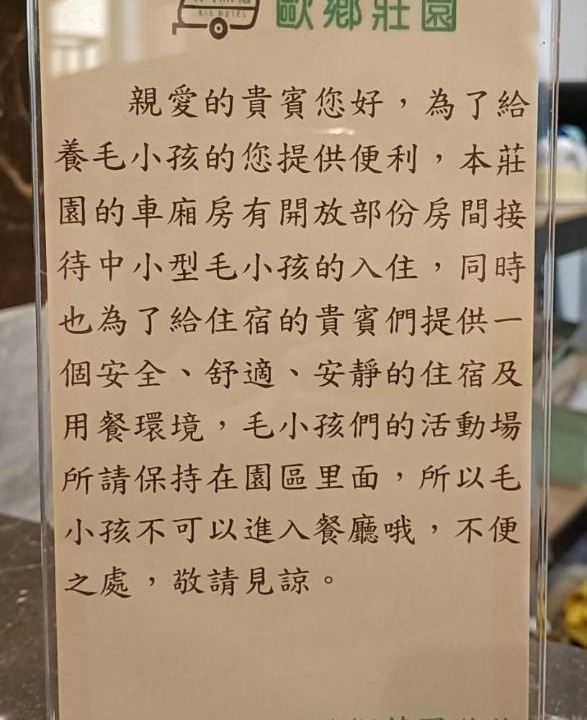 歐鄉莊園
親愛的貴賓您好，為了給
養毛小孩的您提供便利，本莊
園的車廂房有開放部份房間接
待中小型毛小孩的入住，同時
也為了給住宿的貴賓們提供一
個安全、舒適、安靜的住宿及
用餐環境，毛小孩們的活動場
所請保持在園區里面，所以毛
小孩不可以進入餐廳哦，不便
之處，敬請見諒。